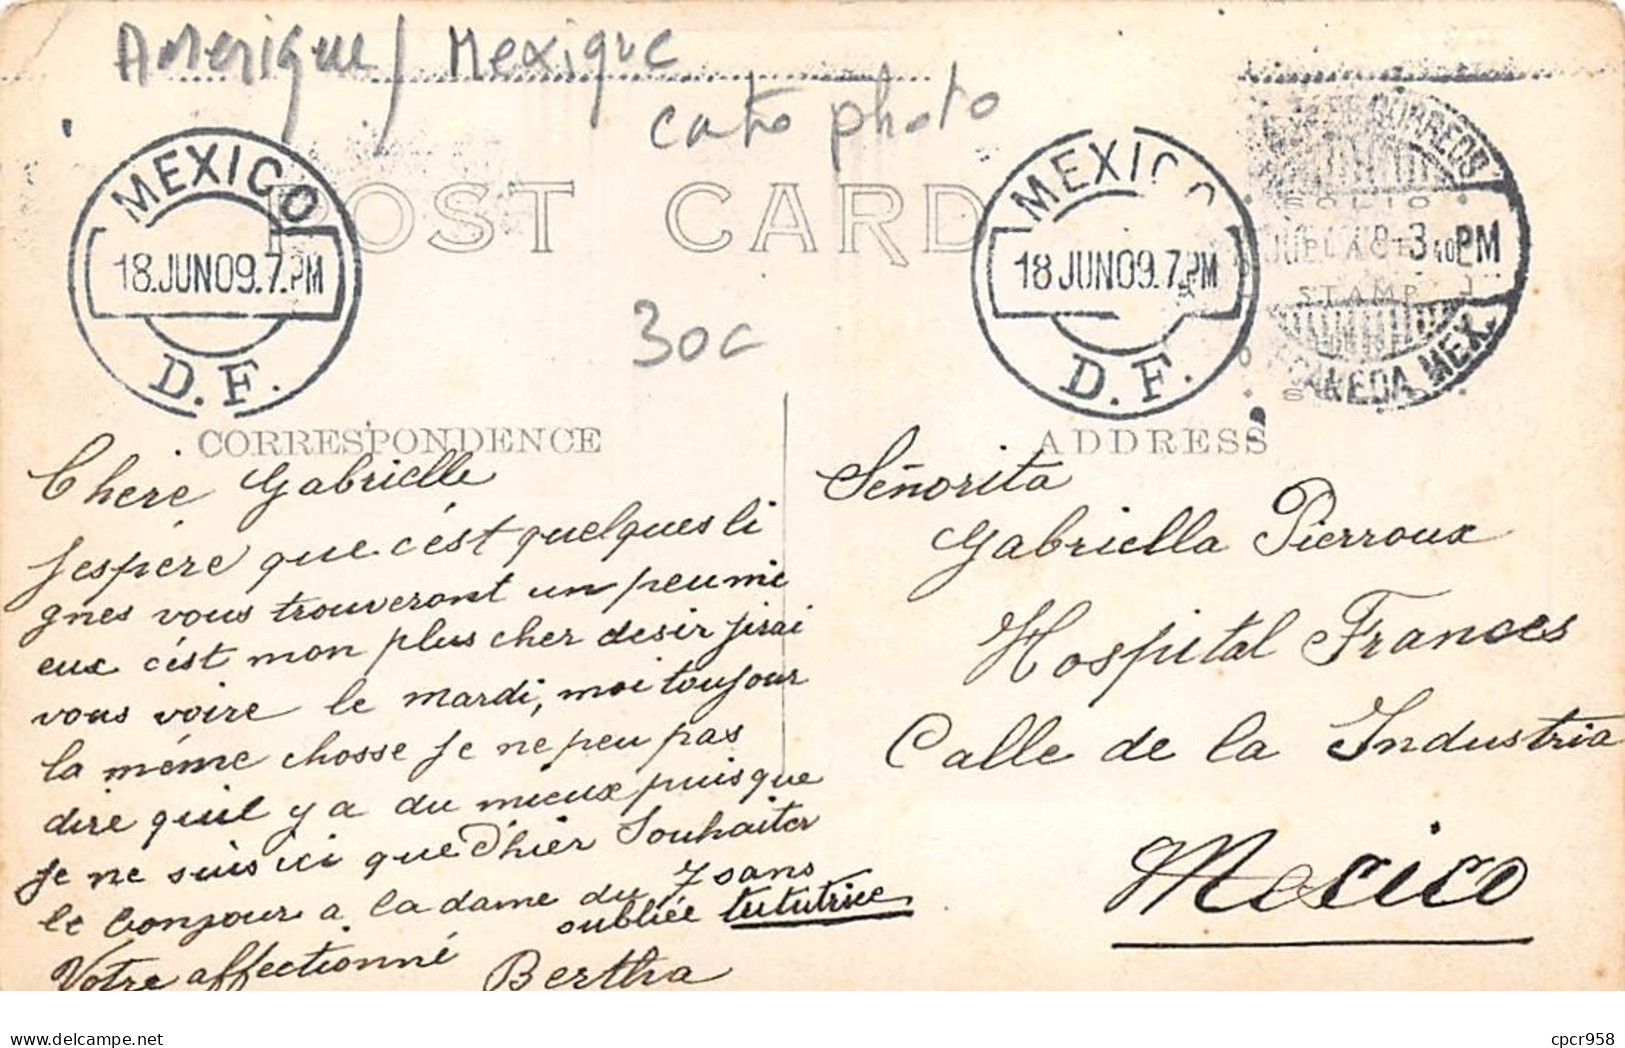 Amerique / Mexique
carte photo
MEXICO
18.JUN09.7.PM
D.F.
MEXICO
18 JUN09.7.PM
D.F.
CORREOS
3 40 PM
MEX.
SOLIO
PLACE
STAMP
POST CARD
30c
CORRESPONDENCE
ADDRESS
Chere Gabrielle
J'espère que c'est quelques li
gnes vous trouveront un peu mi
eux c'est mon plus cher desir j'irai
vous voire le mardi, moi toujour
la même chosse je ne peu pas
dire qu'il y a du mieux puisque
je ne suis ici que d'hier Souhaiter
le bonjour a la dame du 7 sans
oubliée tututrice
Votre affectionné
Bertha
Señorita
Gabriella Pierroux
Hospital Frances
Calle de la Industria
Mexico
delcampe.net
cpcr958